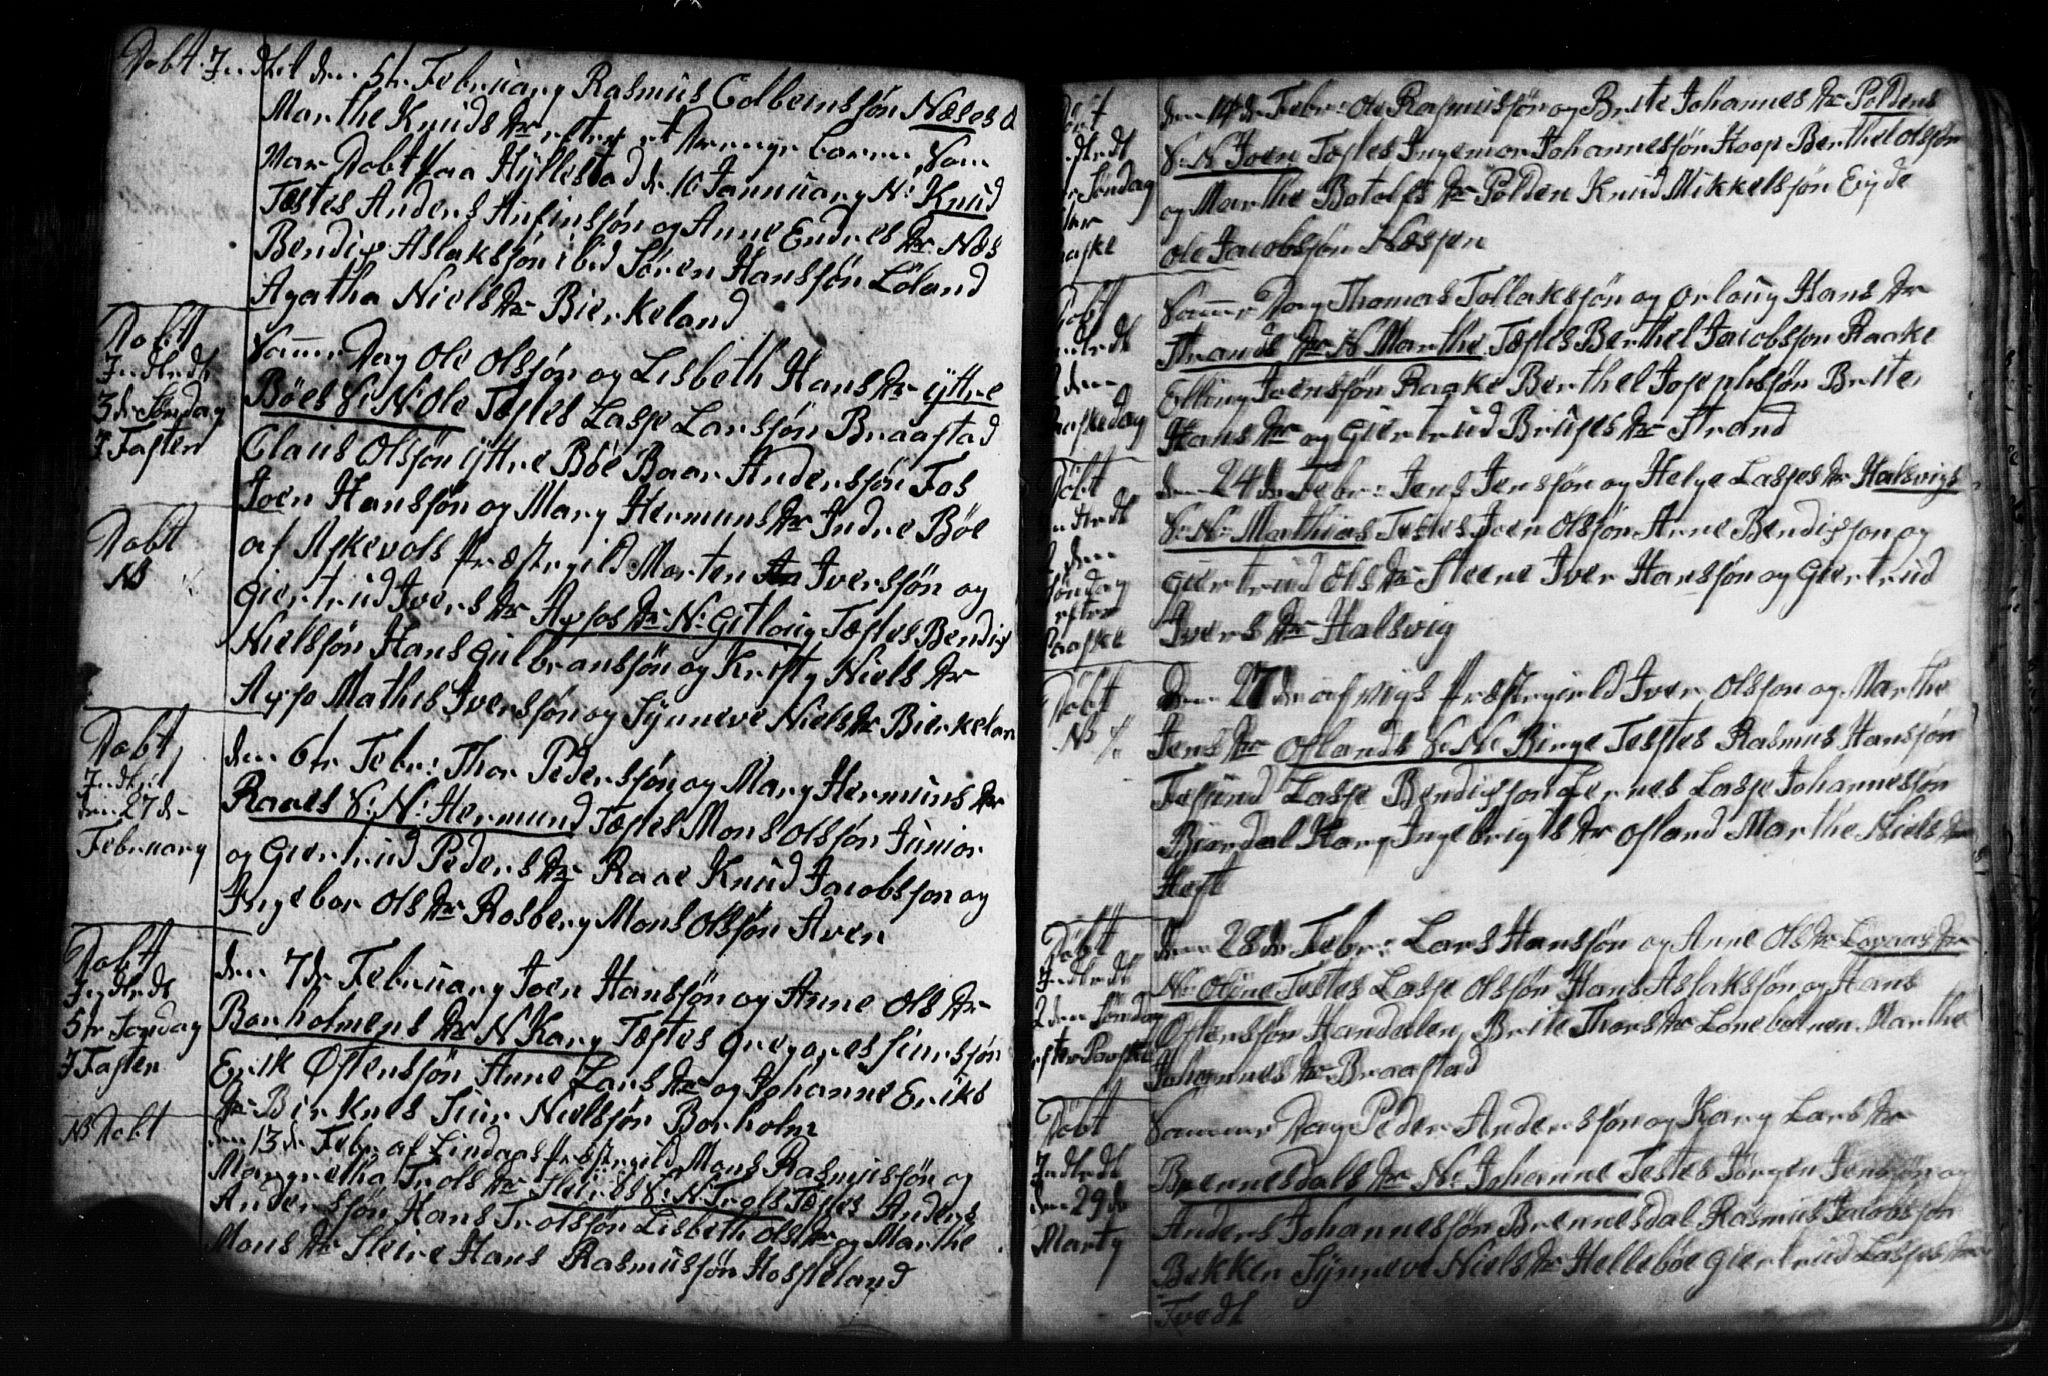 Døbt Jndled den 5te February Rasmus Colbeinssøn Næses
Marthe Knuds Dr efter et Drenge barn Som
Var Døbt paa Hyllestad d. 16 January N: Knud
Tæstes Anders Anfinssøn og Anne Endres Dr Næs
Bendix Aslakssøn ibid Søren Hanssøn Löland
Agatha Niels Dr Bierkeland
Døbt
Jndledt
3de Søndag
J Fasten
Samme Dag Ole Olssøn og Lisbeth Hans Dr ÿttre
Böes S: N: Ole Tæstes Lasse Larssøn Braastad
Claus Olssøn ÿttre Böe Baar Anderssøn Fos
Joen Hanssøn og Mary Hermuns Dr Jndre Böe
Døbt
NB
af Askevols Præstegild Morten Iverssøn og
Giertrud Ivers Dr Dr N: Gitloug Tæstes Bendix
Nielssøn Hans Gulbranssøn og Kristy Niels Dr
Mathes Iverssøn og Sÿnneve Niels Dr Bierkelan
Døbt
Jndled
den 27de
February
den 6te Febr: Thor Pederssøn og Mary Hermuns Dr
Raaes S: N: Hermund Tæstes Mons Olssøn Junior
og Giertrud Peders Dr Raae Knud Jacobsson og
Ingebor Ols Dr Rosberg Mons Olssøn Aven
Døbt
Jndledt
5te Søndag
J Fasten
den 7de February Joen Hanssøn og Anne Ols Dr
Borholmens Dr N Kary Tæstes Gregores Siurssøn
Erik Østenssøn Anne Lars Dr og Johanne Eriks
Dr Birknes Siur Nielssøn Borholm
NB Døbt
den 13de Febr: af Lindaas Præstegild Mons Rasmussøn og
Margretha Trols Dr Sleires S: N: Trols Tæstes Anders
Anderssøn Hans Trolssøn Lisbeth Ols Dr og Marthe
Mons Dr Sleire Hans Rasmussøn Hosteland
den 14de Febr: Ole Rasmussøn og Brite Johannes Dr Poldens
S: N Joen Tæstes Ingemor Johannessøn Hoop Berthel Olssøn
og Marthe Botolfs Dr Polden Knud Mikkelssøn Eÿde
Ole Jacobssøn Næssen
Døbt
Samme Dag Thomas Tollakssøn og Orloug Hans Dr
Strands Dr N Marthe Tæstes Berthel Jacobsson Raake
Elling Joenssøn Raake Berthel Josephssøn Brite
Hans Dr og Giertrud Bruses Dr Strand
Døbt
den 24de Febr: Jens Jenssøn og Helge Lasses Dr Halsvigs
S: N: Mathias Testes Joen Olssøn Arne Bendixson og
Giertrud Ols Dr Steene Iver Hanssøn og Giertrud
Ivers Dr Halsvig
Døbt
NB
den 27de af Vigs Præstegield Iver Olsson og Marthe
Jens Dr Oflands S: N: Birge Testes Rasmus Hanssøn
Lasse Bendixson Lernes Lasse Johannessøn
Biordal Kary Ingebrigts Dr Ofland Marthe Niels Dr
Døbt
Jndledt
2den Søndag
efter Paaske
den 28de Febr: Lars Hanssøn og Anne Ols Dr Lovaas Dr
N: Oline Testes Lasse Olssøn Hans Aslakssøn og Hans
Østenssøn Handalen Brite Thors Dr Lonebotnen Marthe
Johannes Dr Braastad
Døbt
Jndledt
den 29de
Marty
Samme Dag Peder Anderssøn og Kary Lars Dr
Brennesdals Dr N: Johanne Testes Jørgen Jenssøn og
Anders Johannessøn Brennesdal Rasmus Jacobsson
Bekken Sÿnneve Niels Dr Hellebøe Giertrud Lasses Dr
Tvedt